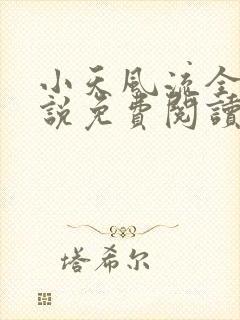 小天風流全
說免費閱讀
塔希尔